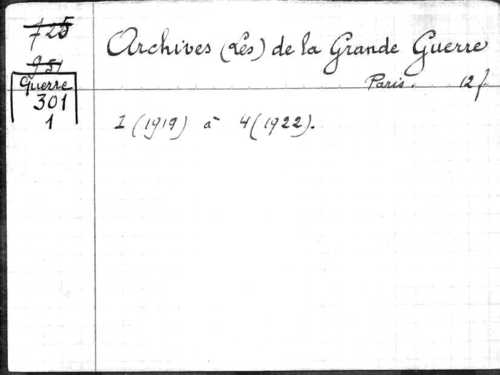 725
951
Guerre
301
1
Archives (Les) de la Grande Guerre
Paris. 12 f.
1 (1919) à 4 (1922).